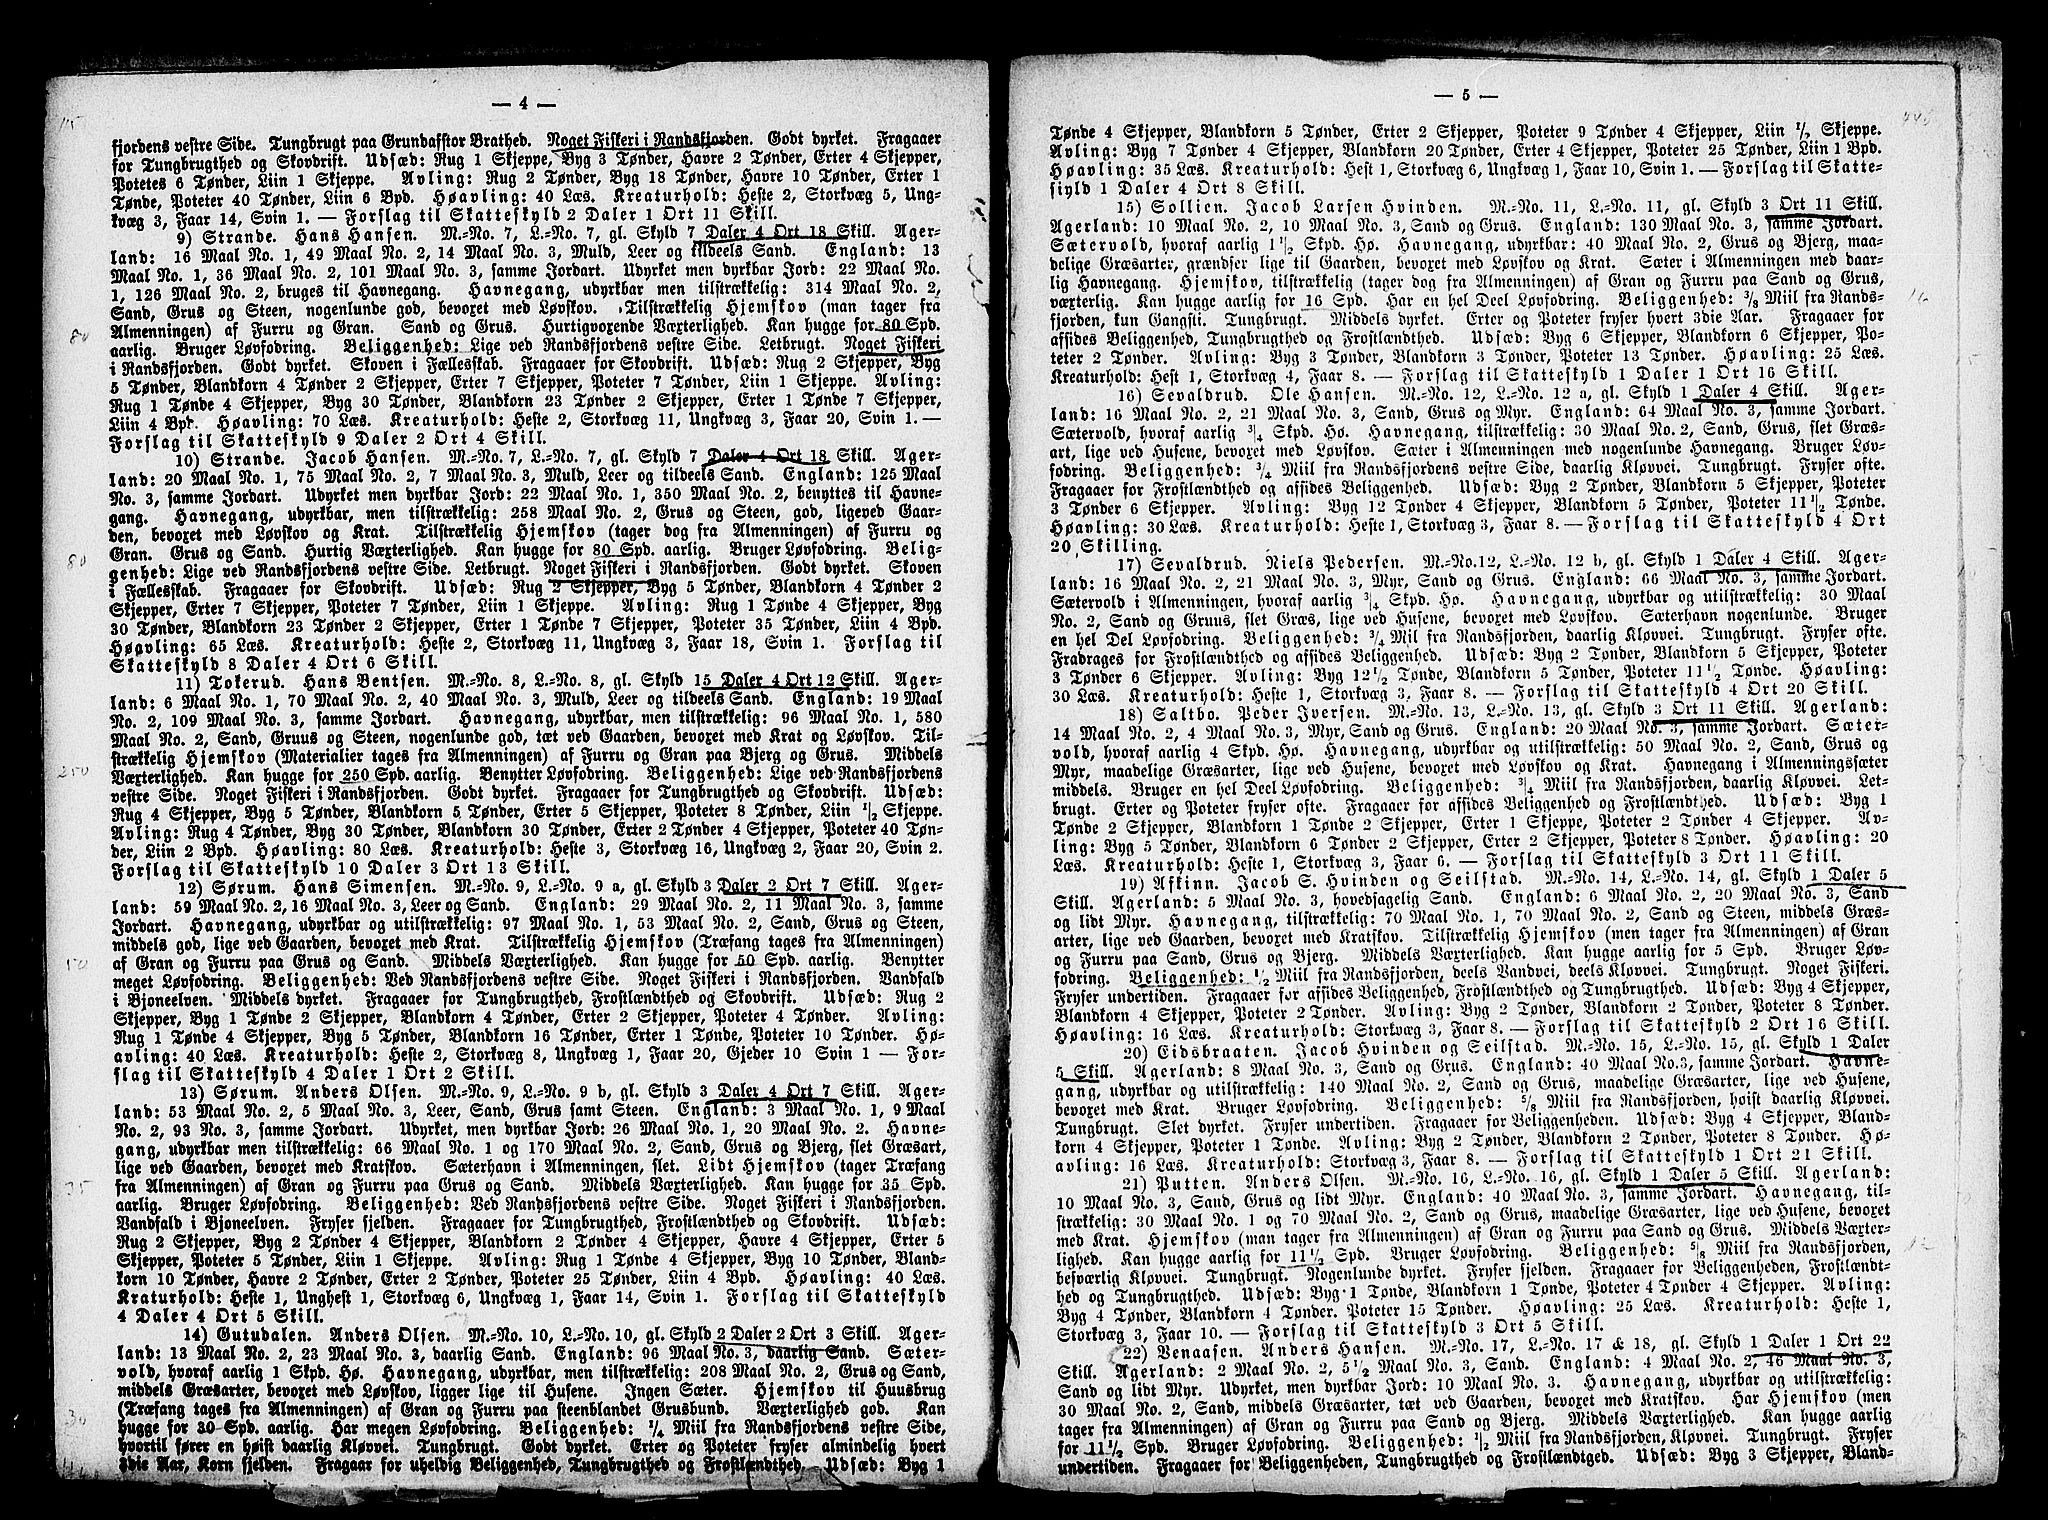 — 4 —
fjordens vestre Side. Tungbrugt paa Grundaffstor Brathed. Noget Fiskeri i Randsfjorden. Godt dyrket. Fragaaer
for Tungbrugthed og Skovdrift. Udsæd: Rug 1 Skjeppe, Byg 3 Tønder, Havre 2 Tønder, Erter 4 Skjepper,
Potetes 6 Tønder, Liin 1 Skjeppe. Avling: Rug 2 Tønder, Byg 18 Tønder, Havre 10 Tønder, Erter 1
Tønde, Poteter 40 Tønder, Liin 6 Bpd. Høavling: 40 Læs. Kreaturhold: Heste 2, Storkvæg 5, Ung-
kvæg 3, Faar 14, Svin 1. — Forslag til Skatteskyld 2 Daler 1 Ort 11 Skill.
9) Strande. Hans Hansen. M.-No. 7, L.-No. 7, gl. Skyld 7 Daler 4 Ort 18 Skill. Ager-
land: 16 Maal No. 1, 49 Maal No. 2, 14 Maal No. 3, Muld, Leer og tildeels Sand. England: 13
Maal No. 1, 36 Maal No. 2, 101 Maal No. 3, samme Jordart. Udyrket men dyrkbar Jord: 22 Maal No.
1, 126 Maal No. 2, bruges til Havnegang. Havnegang, udyrkbar men tilstrækkelig: 314 Maal No. 2,
Sand, Grus og Steen, nogenlunde god, bevoxet med Løvskov. Tilstrækkelig Hjemskov (man tager fra
Almenningen) af Furru og Gran. Sand og Grus. Hurtigvoxende Væxterlighed. Kan hugge for 80 Spd.
80
aarlig. Bruger Løvfodring. Beliggenhed: Lige ved Randsfjordens vestre Side. Letbrugt. Noget Fiskeri
i Randsfjorden. Godt dyrket. Skoven i Fællesskab. Fragaaer for Skovdrift. Udsæd: Rug 2 Skjepper, Byg
5 Tønder, Blandkorn 4 Tønder 2 Skjepper, Erter 7 Skjepper, Poteter 7 Tønder, Liin 1 Skjeppe. Avling:
Rug 1 Tønde 4 Skjepper, Byg 30 Tønder, Blandkorn 23 Tønder 2 Skjepper, Erter 1 Tønde 7 Skjepper,
Liin 4 Bpd. Høavling: 70 Læs. Kreaturhold: Heste 2, Storkvæg 11, Ungkvæg 3, Faar 20, Svin 1. —
Forslag til Skatteskyld 9 Daler 2 Ort 4 Skill.
10) Strande. Jacob Hansen. M.-No. 7, L.-No. 7, gl. Skyld 7 Daler 4 Ort 18 Skill. Ager-
land: 20 Maal No. 1, 75 Maal No. 2, 7 Maal No. 3, Muld, Leer og tildeels Sand. England: 125 Maal
No. 3, samme Jordart. Udyrket men dyrkbar Jord: 22 Maal No. 1, 350 Maal No. 2, benyttes til Havne-
gang. Havnegang, udyrkbar, men tilstrækkelig: 258 Maal No. 2, Grus og Steen, god, ligeved Gaar-
den, bevoxet med Løvskov og Krat. Tilstrækkelig Hjemskov (tager dog fra Almenningen) af Furru og
Gran. Grus og Sand. Hurtig Væxterlighed. Kan hugge for 80 Spd. aarlig. Bruger Løvfodring. Belig-
80
genhed: Lige ved Randsfjordens vestre Side. Letbrugt. Noget Fiskeri i Randsfjorden. Godt dyrket. Skoven
i Fællesskab. Fragaaer for Skovdrift. Udsæd: Rug 2 Skjepper, Byg 5 Tønder, Blandkorn 4 Tønder 2
Skjepper, Erter 7 Skjepper, Poteter 7 Tønder, Liin 1 Skjeppe. Avling: Rug 1 Tønde 4 Skjepper, Byg
30 Tønder, Blandkorn 23 Tønder 2 Skjepper, Erter 1 Tønde 7 Skjepper, Poteter 35 Tønder, Liin 4 Bpd.
Høavling: 65 Læs. Kreaturhold: Heste 2, Storkvæg 11, Ungkvæg 3, Faar 18, Svin 1. Forslag til
Skatteskyld 8 Daler 4 Ort 6 Skill.
11) Tokerud. Hans Bentsen. M.-No. 8, L.-No. 8, gl. Skyld 15 Daler 4 Ort 12 Skill. Ager-
land: 6 Maal No. 1, 70 Maal No. 2, 40 Maal No. 3, Muld, Leer og tildeels Sand. England: 19 Maal
No. 2, 109 Maal No. 3, samme Jordart. Havnegang, udyrkbar, men tilstrækkelig: 96 Maal No. 1, 580
Maal No. 2, Sand, Gruus og Steen, nogenlunde god, tæt ved Gaarden, bevoxet med Krat og Løvskov. Til-
strækkelig Hjemskov (Materialier tages fra Almenningen) af Furru og Gran paa Bjerg og Grus. Middels
Væxterlighed. Kan hugge for 250 Spd. aarlig. Benytter Løvfodring. Beliggenhed: Lige ved Randsfjordens
250
vestre Side. Noget Fiskeri i Randsfjorden. Godt dyrket. Fragaaer for Tungbrugthed og Skovdrift. Udsæd:
Rug 4 Skjepper, Byg 5 Tønder, Blandkorn 5 Tønder, Erter 5 Skjepper, Poteter 8 Tønder, Liin 1/2 Skjeppe.
Avling: Rug 4 Tønder, Byg 30 Tønder, Blandkorn 30 Tønder, Erter 2 Tønder 4 Skjepper, Poteter 40 Tøn-
der, Liin 2 Bpd. Høavling: 80 Læs. Kreaturhold: Heste 3, Storkvæg 16, Ungkvæg 2, Faar 20, Svin 2.
Forslag til Skatteskyld 10 Daler 3 Ort 13 Skill.
12) Sørum. Hans Simensen. M.-No. 9, L.-No. 9 a, gl. Skyld 3 Daler 2 Ort 7 Skill. Ager-
land: 59 Maal No. 2, 16 Maal No. 3, Leer og Sand. England: 29 Maal No. 2, 11 Maal No. 3, samme
Jordart. Havnegang, udyrkbar og utilstrækkelig: 97 Maal No. 1, 53 Maal No. 2, Sand, Grus og Steen,
middels god, lige ved Gaarden, bevoxet med Krat. Tilstrækkelig Hjemskov (Træfang tages fra Almenningen)
af Gran og Furru paa Grus og Sand. Middels Væxterlighed. Kan hugge for 50 Spd. aarlig. Benytter
50
meget Løvfodring. Beliggenhed: Ved Randsfjordens vestre Side. Noget Fiskeri i Randsfjorden. Vandfald
i Bjoneelven. Middels dyrket. Fragaaer for Tungbrugthed, Frostlændthed og Skovdrift. Udsæd: Rug 2
Skjepper, Byg 1 Tønde 2 Skjepper, Blandkorn 4 Tønder, Erter 2 Skjepper, Poteter 4 Tønder. Avling:
Rug 1 Tønde 4 Skjepper, Byg 5 Tønder, Blandkorn 16 Tønder, Erter 1 Tønde, Poteter 10 Tønder. Hø-
avling: 40 Læs. Kreaturhold: Heste 2, Storkvæg 8, Ungkvæg 1, Faar 20, Gjeder 10 Svin 1 — For-
slag til Skatteskyld 4 Daler 1 Ort 2 Skill.
13) Sørum. Anders Olsen. M.-No. 9, L.-No. 9 b, gl. Skyld 3 Daler 4 Ort 7 Skill. Ager-
land: 53 Maal No. 2, 5 Maal No. 3, Leer, Sand, Grus samt Steen. England: 3 Maal No. 1, 9 Maal
No. 2, 93 No. 3, samme Jordart. Udyrket, men dyrkbar Jord: 26 Maal No. 1, 20 Maal No. 2. Havne-
gang, udyrkbar men tilstrækkelig: 66 Maal No. 1 og 170 Maal No. 2, Sand, Grus og Bjerg, slet Græsart,
lige ved Gaarden, bevoxet med Kratskov. Sæterhavn i Almenningen, slet. Lidt Hjemskov (tager Træfang
fra Almenningen) af Gran og Furru paa Grus og Sand. Middels Væxterlighed. Kan hugge for 35 Spd.
35
aarlig. Bruger Løvfodring. Beliggenhed: Ved Randsfjordens vestre Side. Noget Fiskeri i Randsfjorden.
Vandfald i Bjoneelven. Fryser sjelden. Fragaaer for Tungbrugthed, Frostlændthed og Skovdrift. Udsæd:
Rug 2 Skjepper, Byg 2 Tønder 4 Skjepper, Blandkorn 2 Tønder 4 Skjepper, Havre 4 Skjepper, Erter 5
Skjepper, Poteter 5 Tønder, Liin 1 Skjeppe. Avling: Rug 1 Tønde 4 Skjepper, Byg 10 Tønder, Bland-
korn 10 Tønder, Havre 2 Tønder, Erter 2 Tønder, Poteter 25 Tønder, Liin 4 Bpd. Høavling: 40 Læs.
Kraturhold: Heste 1, Unghest 1, Storkvæg 6, Ungkvæg 1, Faar 14, Svin 1. Forslag til Skatteskyld
4 Daler 4 Ort 5 Skill.
14) Gutudalen. Anders Olsen. M.-No. 10, L.-No. 10, gl. Skyld 2 Daler 2 Ort 3 Skill. Ager-
land: 13 Maal No. 2, 23 Maal No. 3, daarlig Sand. England: 96 Maal No. 3, daarlig Sand. Sæter-
vold, hvoraf aarlig 1 Skpd. Hø. Havnegang, udyrkbar, men tilstrækkelig: 208 Maal No. 2, Grus og Sand,
middels Græsarter, bevoxet med Løvskov, ligger lige til Husene. Ingen Sæter. Hjemskov til Huusbrug
(Træfang tages fra Almenningen) af Gran og Furru paa steenblandet Grusbund. Væxterlighed god. Kan
hugge for 30 Spd. aarlig. Har megen Løvfodring. Beliggenhed: 1/4 Miil fra Randsfjordens vestre Side,
30
hvortil fører en høist daarlig Kløvvei. Tungbrugt. Godt dyrket. Erter og Poteter fryser almindelig hvert
3die Aar, Korn sjelden. Fragaar for uheldig Beliggenhed, Tungbrugthed og Frostlændthed. Udsæd: Byg 1
— 5 —
Tønde 4 Skjepper, Blandkorn 5 Tønder, Erter 2 Skjepper, Poteter 9 Tønder 4 Skjepper, Liin 1/2 Skjeppe.
Avling: Byg 7 Tønder 4 Skjepper, Blandkorn 20 Tønder, Erter 4 Skjepper, Poteter 25 Tønder, Liin 1 Bpd.
Høavling: 35 Læs. Kreaturhold: Hest 1, Storkvæg 6, Ungkvæg 1, Faar 10, Svin 1. — Forslag til Skatte-
skyld 1 Daler 4 Ort 8 Skill.
15) Sollien. Jacob Larsen Hvinden. M.-No. 11, L.-No. 11, gl. Skyld 3 Ort 11 Skill.
Agerland: 10 Maal No. 2, 10 Maal No. 3, Sand og Grus. England: 130 Maal No. 3, samme Jordart.
Sætervold, hvoraf aarlig 1 1/2 Skpd. Hø. Havnegang, udyrkbar: 40 Maal No. 2, Grus og Bjerg, maa-
delige Græsarter, grændser lige til Gaarden, bevoxet med Løvskov og Krat. Sæter i Almenningen med daar-
lig Havnegang. Hjemskov, tilstrækkelig (tager dog fra Almenningen) af Gran og Furru paa Sand og Grus,
væxterlig. Kan hugge aarlig for 16 Spd. Har en hel Deel Løvfodring. Beliggenhed: 3/8 Miil fra Rands-
16
fjorden, kun Gangsti. Tungbrugt. Middels dyrket. Erter og Poteter fryser hvert 3die Aar. Fragaaer for
affides Beliggenhed, Tungbrugthed og Frostlændthed. Udsæd: Byg 6 Skjepper, Blandkorn 6 Skjepper, Po-
teter 2 Tønder. Avling: Byg 3 Tønder, Blandkorn 3 Tønder, Poteter 13 Tønder. Høavling: 25 Læs.
Kreaturhold: Hest 1, Storkvæg 4, Faar 8. — Forslag til Skatteskyld 1 Daler 1 Ort 16 Skill.
16) Sevaldrud. Ole Hansen. M.-No. 12, L.-No. 12 a, gl. Skyld 1 Daler 4 Skill. Ager-
land: 16 Maal No. 2, 21 Maal No. 3, Sand, Grus og Myr. England: 64 Maal No. 3, samme Jordart.
Sætervold, hvoraf aarlig 3/4 Skpd. Hø. Havnegang, tilstrækkelig: 30 Maal No. 2, Sand, Grus, slet Græs-
art, lige ved Husene, bevoxet med Løvskov. Sæter i Almenningen med nogenlunde Havnegang. Bruger Løv-
fodring. Beliggenhed: 3/4 Miil fra Randsfjordens vestre Side, daarlig Kløvvei. Tungbrugt. Fryser ofte.
Fragaaer for Frostlændthed og affides Beliggenhed. Udsæd: Byg 2 Tønder, Blandkorn 5 Skjepper, Poteter
3 Tønder 6 Skjepper. Avling: Byg 12 Tønder 4 Skjepper, Blandkorn 5 Tønder, Poteter 11 1/2 Tønde.
Høavling: 30 Læs. Kreaturhold: Heste 1, Storkvæg 3, Faar 8. — Forslag til Skatteskyld 4 Ort
20 Skilling.
17) Sevaldrud. Niels Pedersen. M.-No. 12, L.-No. 12 b, gl. Skyld 1 Daler 4 Skill. Ager-
land: 16 Maal No. 2, 21 Maal No. 3, Myr, Sand og Grus. England: 66 Maal No. 3, samme Jordart.
Sætervold i Almenningen, hvoraf aarlig 3/4 Skpd. Hø. Havnegang, udyrkbar og utilstrækkelig: 30 Maal
No. 2, Sand og Gruus, slet Græs, lige ved Husene, bevoxet med Løvskov. Sæterhavn nogenlunde. Bruger
en hel Del Løvfodring. Beliggenhed: 3/4 Mil fra Randsfjorden, daarlig Kløvvei. Tungbrugt. Fryser ofte.
Fradrages for Frostlændthed og affides Beliggenhed. Udsæd: Byg 2 Tønder, Blandkorn 5 Skjepper, Poteter
3 Tønder 6 Skjepper. Avling: Byg 12 1/2 Tønde, Blandkorn 5 Tønder, Poteter 11 1/2 Tønde. Høavling:
30 Læs. Kreaturhold: Heste 1, Storkvæg 3, Faar 8. — Forslag til Skatteskyld 4 Ort 20 Skill.
18) Saltbo. Peder Iversen. M.-No. 13, L.-No. 13, gl. Skyld 3 Ort 11 Skill. Agerland:
14 Maal No. 2, 4 Maal No. 3, Myr, Sand og Grus. England: 20 Maal No. 3, samme Jordart. Sæter-
vold, hvoraf aarlig 4 Skpd. Hø. Havnegang, udyrkbar og utilstrækkelig: 50 Maal No. 2, Sand, Grus og
Myr, maadelige Græsarter, lige ved Husene, bevoxet med Løvskov og Krat. Havnegang i Almenningssæter
middels. Bruger en hel Deel Løvfodring. Beliggenhed: 3/4 Miil fra Randsfjorden, daarlig Kløvvei. Let-
brugt. Erter og Poteter fryser ofte. Fragaaer for affides Beliggenhed og Frostlændthed. Udsæd: Byg 1
Tønde 2 Skjepper, Blandkorn 1 Tønde 2 Skjepper, Erter 1 Skjeppe, Poteter 2 Tønder 4 Skjepper. Av-
ling: Byg 5 Tønder, Blandkorn 6 Tønder 2 Skjepper, Erter 2 Skjepper, Poteter 8 Tønder. Høavling: 20
Læs. Kreaturhold: Heste 1, Storkvæg 3, Faar 6. — Forslag til Skatteskyld 3 Ort 11 Skill.
19) Askinn. Jacob S. Hvinden og Seilstad. M.-No. 14, L.-No. 14, gl. Skyld 1 Daler 5
Skill. Agerland: 5 Maal No. 3, hovedsagelig Sand. England: 6 Maal No. 2, 20 Maal No. 3, Sand
og lidt Myr. Havnegang, tilstrækkelig: 70 Maal No. 1, 70 Maal No. 2, Sand og Steen, middels Græs-
arter, lige ved Gaarden, bevoxet med Kratskov. Tilstrækkelig Hjemskov (men tager fra Almenningen) af Gran
og Furru paa Sand, Grus og Bjerg. Middels Væxterlighed. Kan hugge aarlig for 5 Spd. Bruger Løv-
fodring. Beliggenhed: 1/2 Miil fra Randsfjorden, deels Vandvei, deels Kløvvei. Tungbrugt. Noget Fiskeri.
Fryser undertiden. Fragaaer for affides Beliggenhed, Frostlændthed og Tungbrugthed. Udsæd: Byg 4 Skjepper,
Blandkorn 4 Skjepper, Poteter 2 Tønder. Avling: Byg 2 Tønder, Blandkorn 2 Tønder, Poteter 8 Tønder.
Høavling: 16 Læs. Kreaturhold: Storkvæg 3, Faar 8. — Forslag til Skatteskyld 2 Ort 16 Skill.
20) Eidsbraaten. Jacob Hvinden og Seilstad. M.-No. 15, L.-No. 15, gl. Skyld 1 Daler
5 Skill. Agerland: 8 Maal No. 3, Sand og Grus. England: 40 Maal No.3, samme Jordart. Havne-
gang, udyrkbar og utilstrækkelig: 140 Maal No. 2, Sand og Grus, maadelige Græsarter, lige ved Husene,
bevoxet med Krat. Bruger Løvfodring. Beliggenhed: 5/8 Miil fra Randsfjorden, høist daarlig Kløvvei.
Tungbrugt. Slet dyrket. Fryser undertiden. Fragaaer for Beliggenheden. Udsæd: Byg 4 Skjepper, Bland-
korn 4 Skjepper, Poteter 1 Tønde. Avling: Byg 2 Tønder, Blandkorn 2 Tønder, Poteter 8 Tønder. Hø-
avling: 16 Læs. Kreaturhold: Storkvæg 3, Faar 8. — Forslag til Skatteskyld 1 Ort 21 Skill.
21) Putten. Anders Olsen. M.-No. 16, L.-No. 16, gl. Skyld 1 Daler 5 Skill. Agerland:
10 Maal No. 3, Sand, Grus og lidt Myr. England: 40 Maal No. 3, samme Jordart. Havnegang, til-
strækkelig: 30 Maal No. 1 og 70 Maal No. 2, Sand og Grus, maadelige Græsarter, lige ved Husene, bevoxet
med Krat. Hjemskov (man tager fra Almenningen) af Gran og Furru paa Sand og Grus. Middels Væxter-
lighed. Kan hugge aarlig for 11 1/2 Spd. Bruger Løvfodring. Beliggenhed: 5/8 Miil fra Randsfjorden,
12
besværlig Kløvvei. Tungbrugt. Nogenlunde dyrket. Fryser sjelden. Fragaaer for Beliggenheden, Frostlændt-
hed og Tungbrugthed. Udsæd: Byg 1 Tønde, Blandkorn 1 Tønde, Poteter 4 Tønder 4 Skjepper. Avling:
Byg 4 Tønder, Blandkorn 4 Tønder, Poteter 15 Tønder. Høavling: 25 Læs. Kreaturhold: Heste 1,
Storkvæg 3, Faar 10. — Forslag til Skatteskyld 3 Ort 5 Skill.
22) Venaasen. Anders Hansen. M.-No. 17, L.-No 17 & 18, gl. Skyld 1 Daler 1 Ort 22
Skill. Agerland: 2 Maal No. 2, 5 1/2 Maal No. 3, Sand. England: 4 Maal No. 2, 46 Maal No. 3,
Sand og lidt Myr. Udyrket, men dyrkbar Jord: 10 Maal No. 3. Havnegang, udyrkbar og utilstrækkelig:
30 Maal No. 2, Sand, middels Græsarter, tæt ved Gaarden, bevoxet med Kratskov. Har Hjemskov (men
tager fra Almenningen) af Gran og Furru paa Sand og Bjerg. Middels Væxterlighed. Kan hugge aarlig
for 11 1/2 Spd. Bruger Løvfodring. Beliggenhed: 1/2 Miil fra Randsfjorden, Kløvvei. Tungbrugt. Fryser
undertiden. Fragaaer for Beliggenheden, Tungbrugthed og Frostlændtged. Udsæd: Byg 3 Skjepper, Bland-